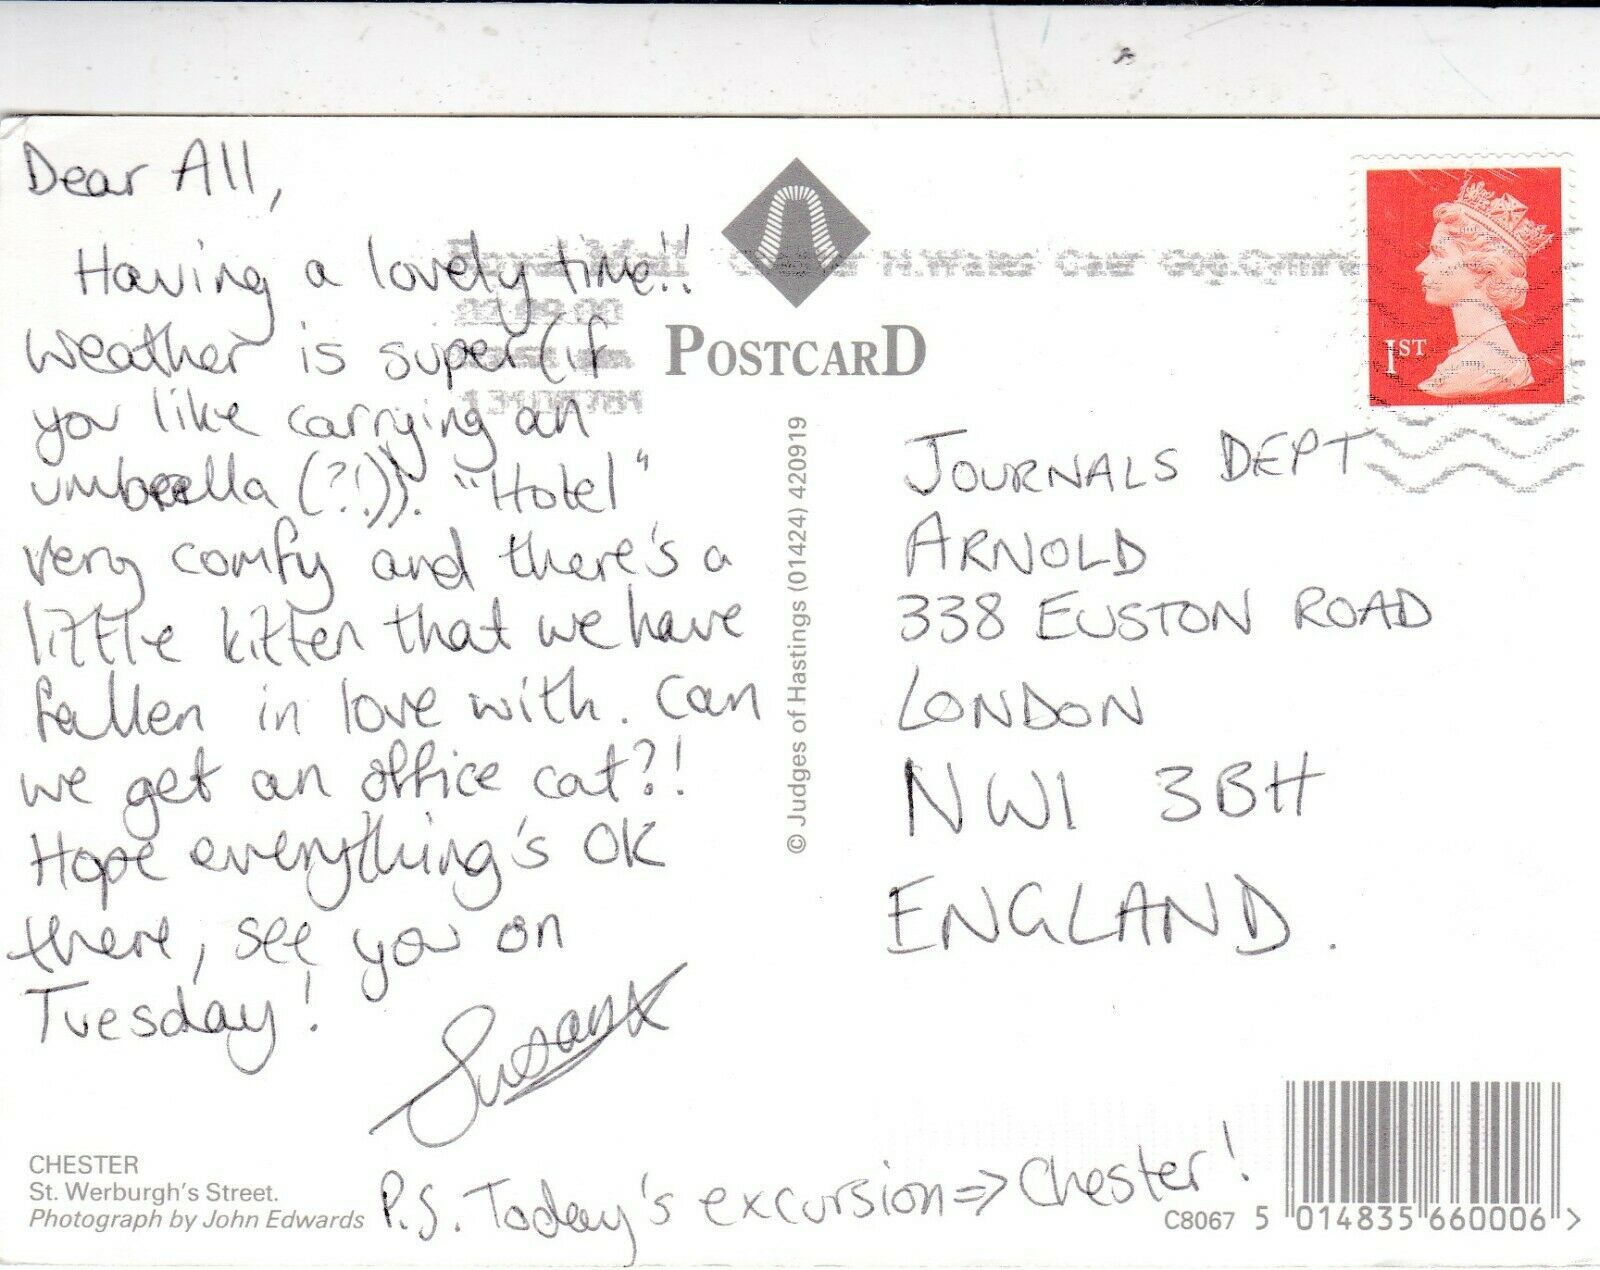 Dear All,
Having a lovely time!!
Weather is super (if
you like carrying an
umbrella (?!)). "Hotel"
very comfy and there's a
little kitten that we have
fallen in love with. Can
we get an office cat?!
Hope everything's OK
there, see you on
Tuesday!
Susan x
P.S. Today's excursion => Chester!
CHESTER
St. Werburgh's Street.
Photograph by John Edwards
POSTCARD
© Judges of Hastings (01424) 420919
Royal Mail
1ST
JOURNALS DEPT
ARNOLD
338 EUSTON ROAD
LONDON
NW1 3BH
ENGLAND.
C8067 5 014835 660006 >